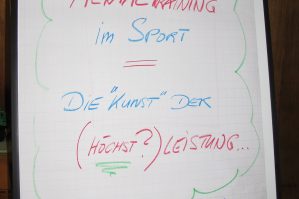 MENTALTRAINING
im SPORT
=
DIE "KUNST" DER
(HÖCHST?) LEISTUNG...